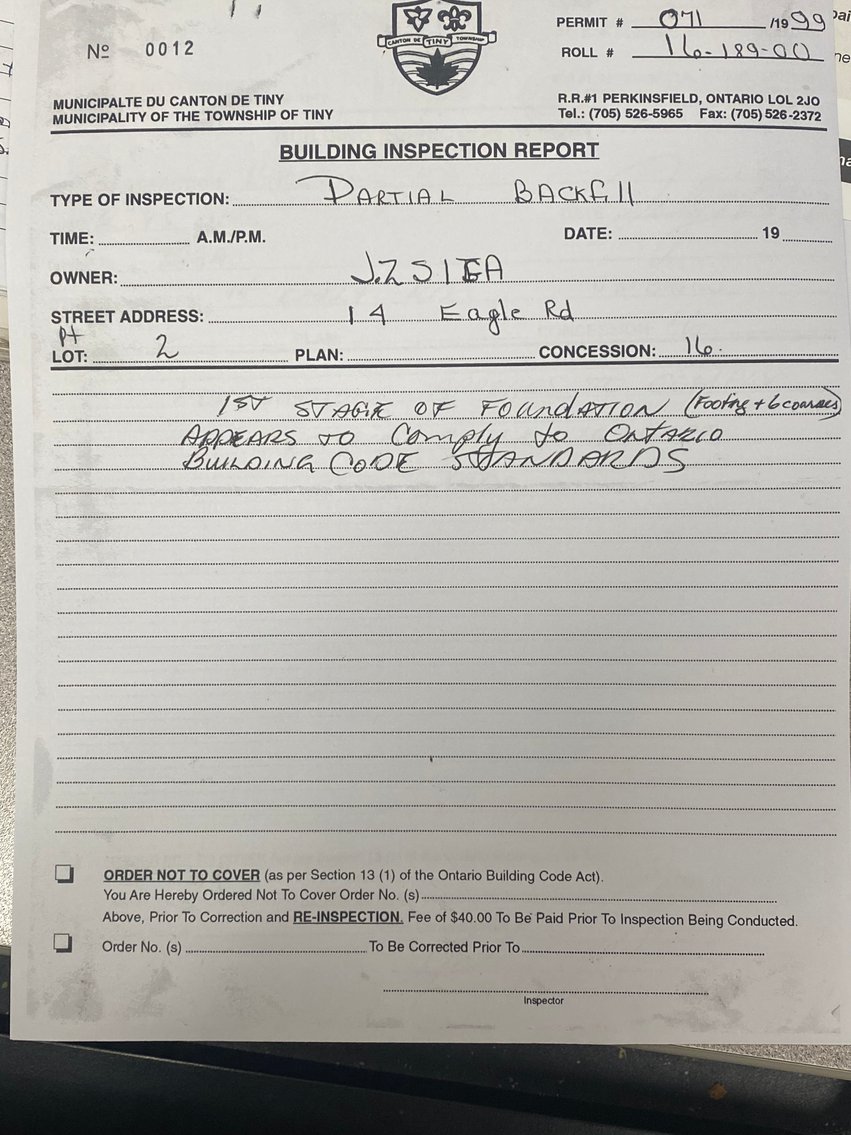 PERMIT # 071 /1999
Nº 0012
CANTON DE TINY TOWNSHIP
ROLL # 16-189-00
MUNICIPALTE DU CANTON DE TINY
MUNICIPALITY OF THE TOWNSHIP OF TINY
R.R.#1 PERKINSFIELD, ONTARIO LOL 2JO
Tel.: (705) 526-5965 Fax: (705) 526-2372
BUILDING INSPECTION REPORT
TYPE OF INSPECTION: PARTIAL BACKFill
TIME: A.M./P.M. DATE: 19
OWNER:
STREET ADDRESS: 14 Eagle Rd
Pt
LOT: 2 PLAN: CONCESSION: 16.
1ST STAGE OF FOUNDATION (Footing + 6 courses)
APPEARS TO Comply to ONTARIO
BUILDING CODE STANDARDS
ORDER NOT TO COVER (as per Section 13 (1) of the Ontario Building Code Act).
You Are Hereby Ordered Not To Cover Order No. (s)
Above, Prior To Correction and RE-INSPECTION. Fee of $40.00 To Be Paid Prior To Inspection Being Conducted.
Order No. (s) To Be Corrected Prior To
Inspector